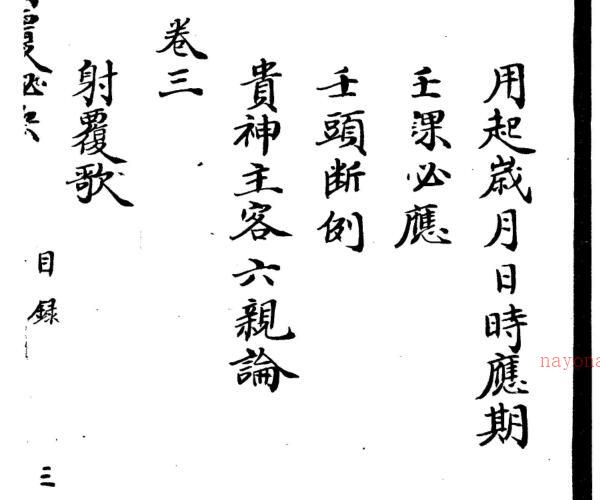 用起歳月日時應期
壬課必應
壬頭断例
貴神主客六親論
卷三
射覆歌
目録
三
nayona